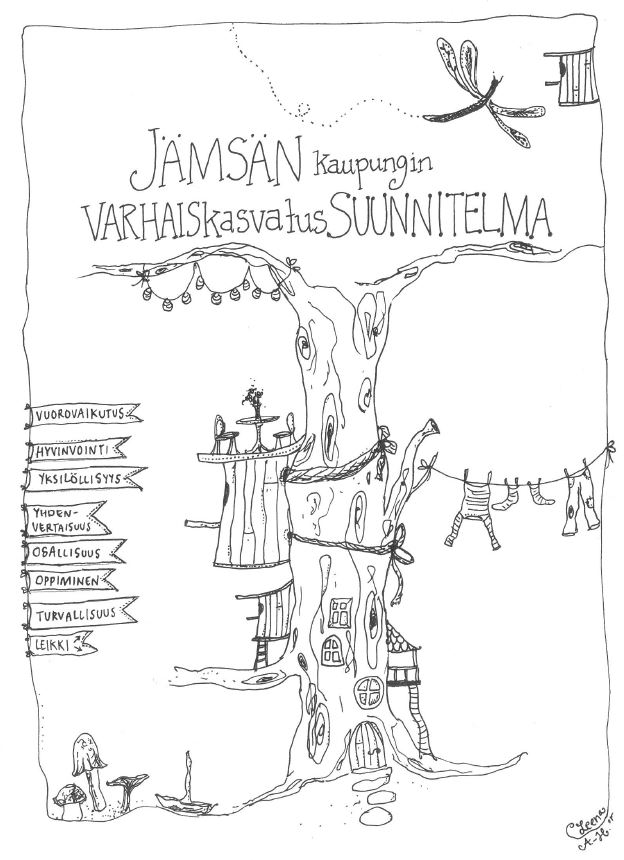 JÄMSÄN kaupungin
VARHAISkasvatusSUUNNITELMA
VUOROVAIKUTUS
HYVINVOINTI
YKSILÖLLISYYS
YHDEN-
VERTAISUUS
OSALLISUUS
OPPIMINEN
TURVALLISUUS
LEIKKI
Leena
A-H.